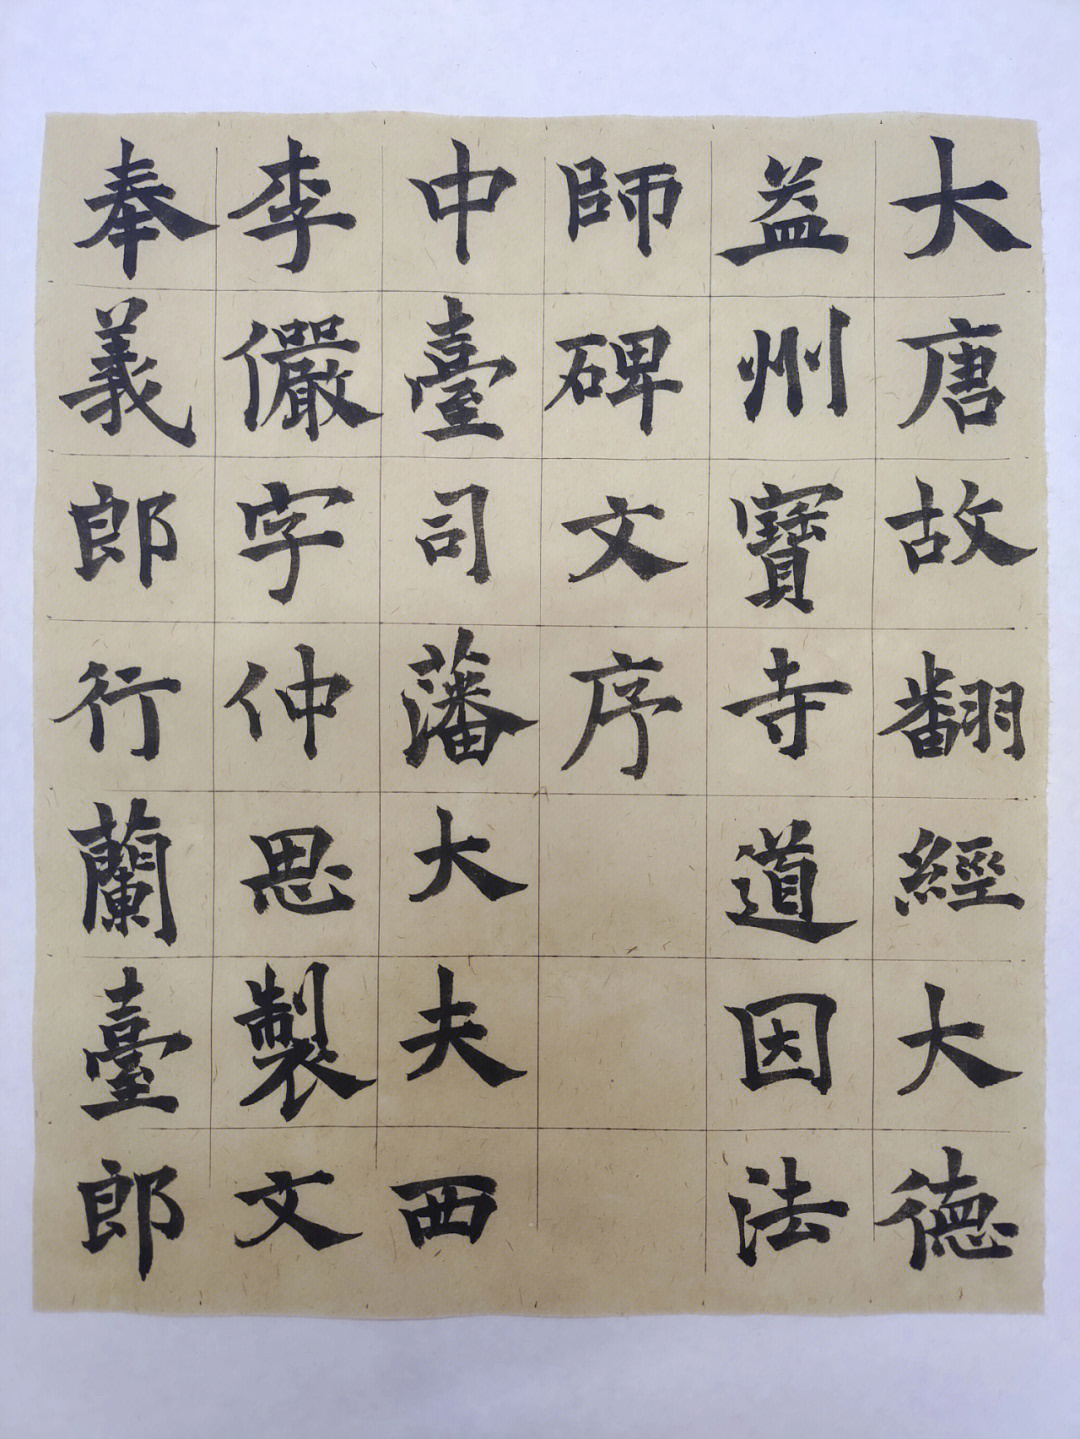 大唐故翻經大德
益州寶寺道因法
師碑文序
中臺司藩大夫
西
李儼字仲思製文
奉義郎行蘭臺郎